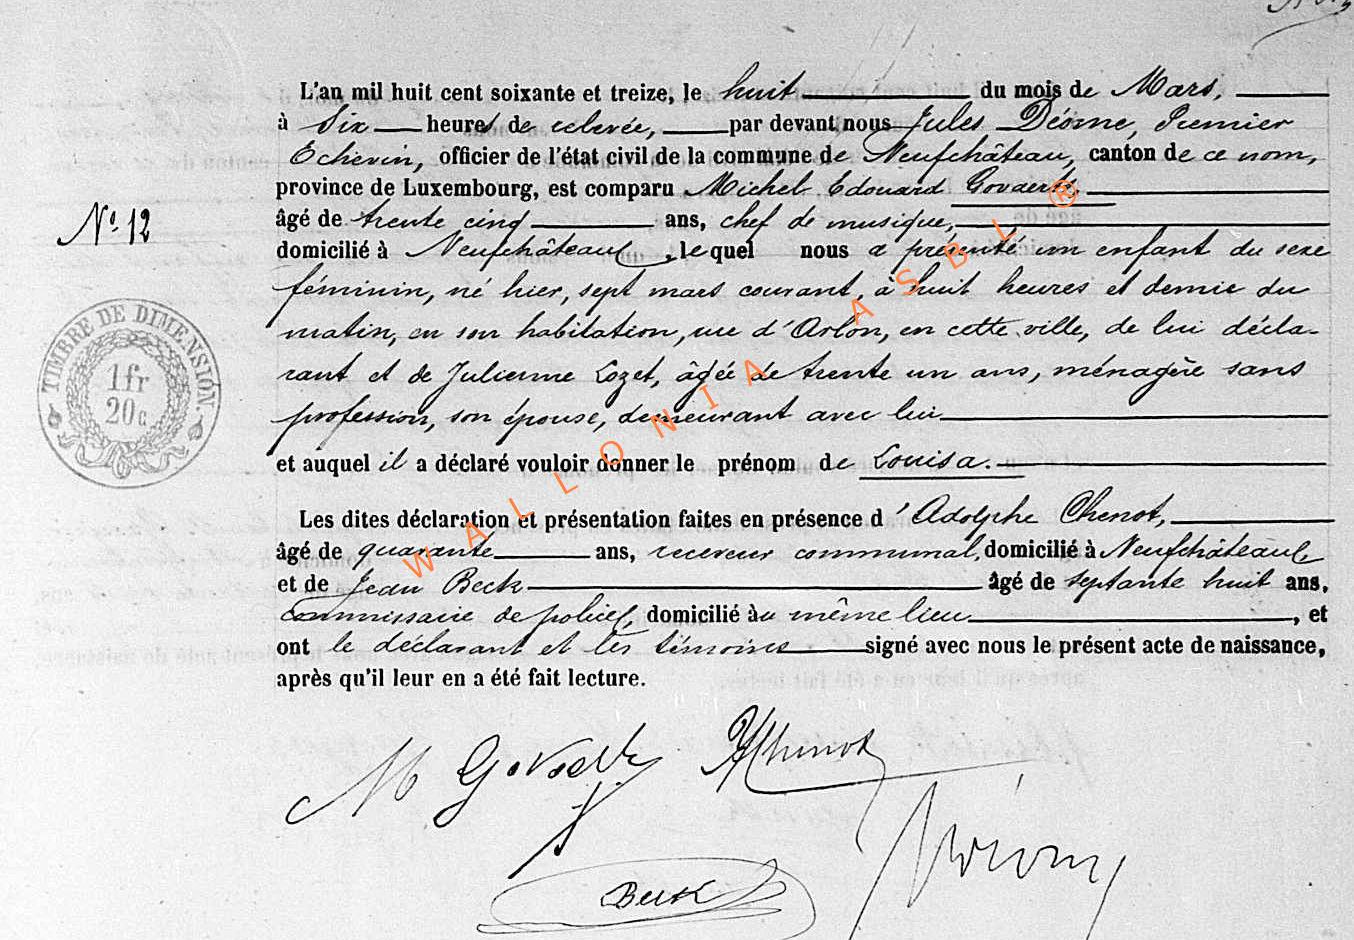 L'an mil huit cent soixante et treize, le huit du mois de Mars,
à Six heures de relevée, par devant nous Jules Déome, Premier
Echevin, officier de l'état civil de la commune de Neufchâteau, canton de ce nom,
province de Luxembourg, est comparu Michel Edouard Govaerts,
N° 12
âgé de trente cinq ans, chef de musique,
domicilié à Neufchâteau, lequel nous a présenté un enfant du sexe
féminin, né hier, sept mars courant, à huit heures et demie du
matin, en son habitation, rue d'Arlon, en cette ville, de lui décla-
rant et de Julienne Lozet, âgée de trente un ans, ménagère sans
profession, son épouse, demeurant avec lui
TIMBRE DE DIMENSION.
1 fr
20 c
et auquel il a déclaré vouloir donner le prénom de Louisa.
Les dites déclaration et présentation faites en présence d'Adolphe Chenot,
âgé de quarante ans, receveur communal, domicilié à Neufchâteau
et de Jean Beck âgé de septante huit ans,
commissaire de police, domicilié au même lieu, et
ont le déclarant et les témoins signé avec nous le présent acte de naissance,
après qu'il leur en a été fait lecture.
M Govaerts AChenot
Beck
WALLONIA ASBL ®